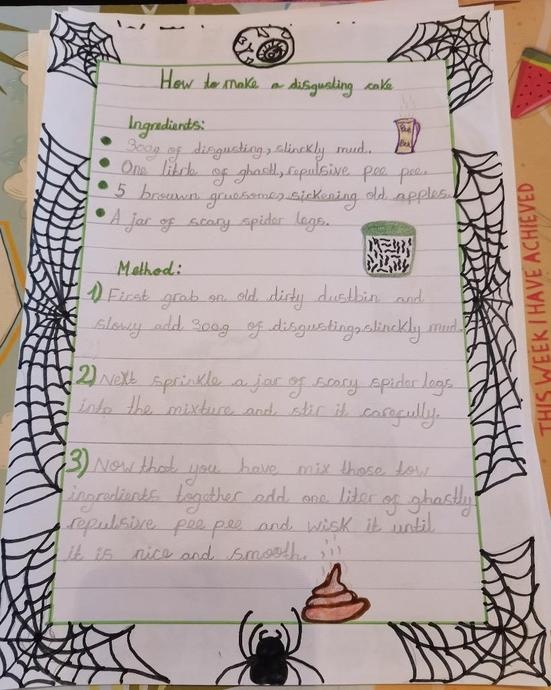 How to make a disgusting cake
Ingredients:
300g of disgusting, slinckly mud.
One litrle of ghastl, repulsive pee pee.
5 brouwn gruesome, sickening old apples.
A jar of scary spider legs.
Method:
1) First grab on old dirty dustbin and
slowy add 300g of disgusting, slinckly mud.
2) Next sprinkle a jar of scary spider legs
into the mixture and stir it carefully.
3) Now that you have mix those tow
ingredients together add one liter of ghastly
repulsive pee pee and wisk it until
it is nice and smooth.
THIS WEEK I HAVE ACHIEVED